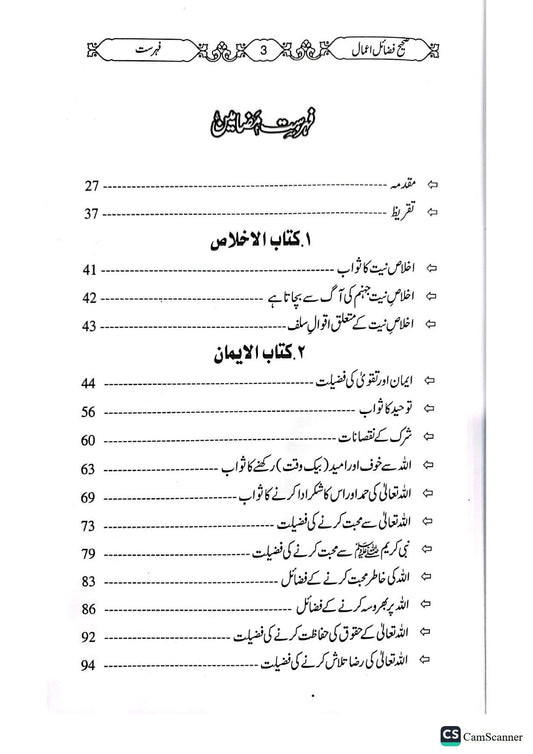 صحیح فضائل اعمال 3 فہرست
فہرستِ مضامین
⇦ مقدمہ ---------- 27
⇦ تقریظ ---------- 37
۱.کتاب الاخلاص
⇦ اخلاص نیت کا ثواب ---------- 41
⇦ اخلاصِ نیت جہنم کی آگ سے بچاتا ہے ---------- 42
⇦ اخلاصِ نیت کے متعلق اقوالِ سلف ---------- 43
۲.کتاب الایمان
⇦ ایمان اور تقویٰ کی فضیلت ---------- 44
⇦ توحید کا ثواب ---------- 56
⇦ شرک کے نقصانات ---------- 60
⇦ اللہ سے خوف اور امید (بیک وقت) رکھنے کا ثواب ---------- 63
⇦ اللہ تعالیٰ کی حمد اور اس کا شکر ادا کرنے کا ثواب ---------- 69
⇦ اللہ تعالیٰ سے محبت کرنے کی فضیلت ---------- 73
⇦ نبی کریم ﷺ سے محبت کرنے کی فضیلت ---------- 79
⇦ اللہ کی خاطر محبت کرنے کے فضائل ---------- 83
⇦ اللہ پر بھروسہ کرنے کے فضائل ---------- 86
⇦ اللہ تعالیٰ کے حقوق کی حفاظت کرنے کی فضیلت ---------- 92
⇦ اللہ تعالیٰ کی رضا تلاش کرنے کی فضیلت ---------- 94
CS CamScanner